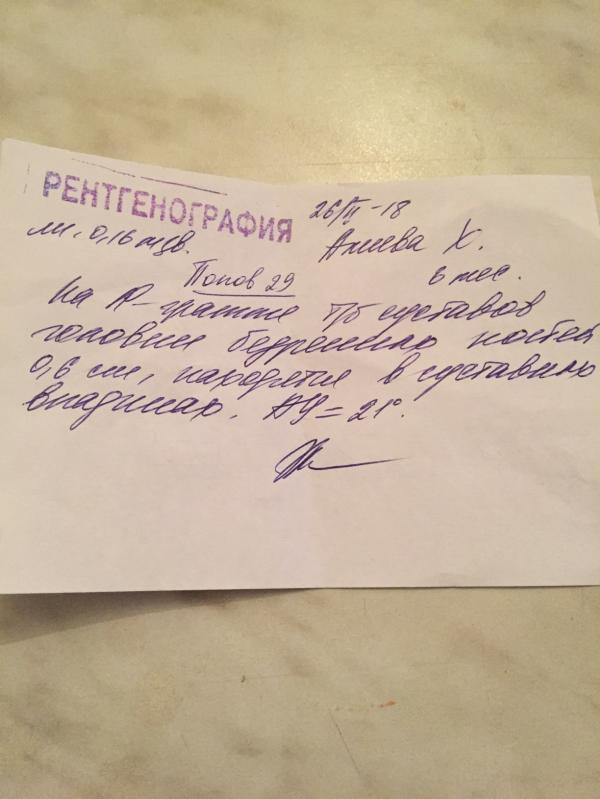 РЕНТГЕНОГРАФИЯ
26/III-18
0,16 мзв.
Алиева Х.
6 мес.
Попов 29
На R-грамме т/б суставов
головки бедренных костей
0,6 см, находятся в суставных
впадинах. АУ = 21°.